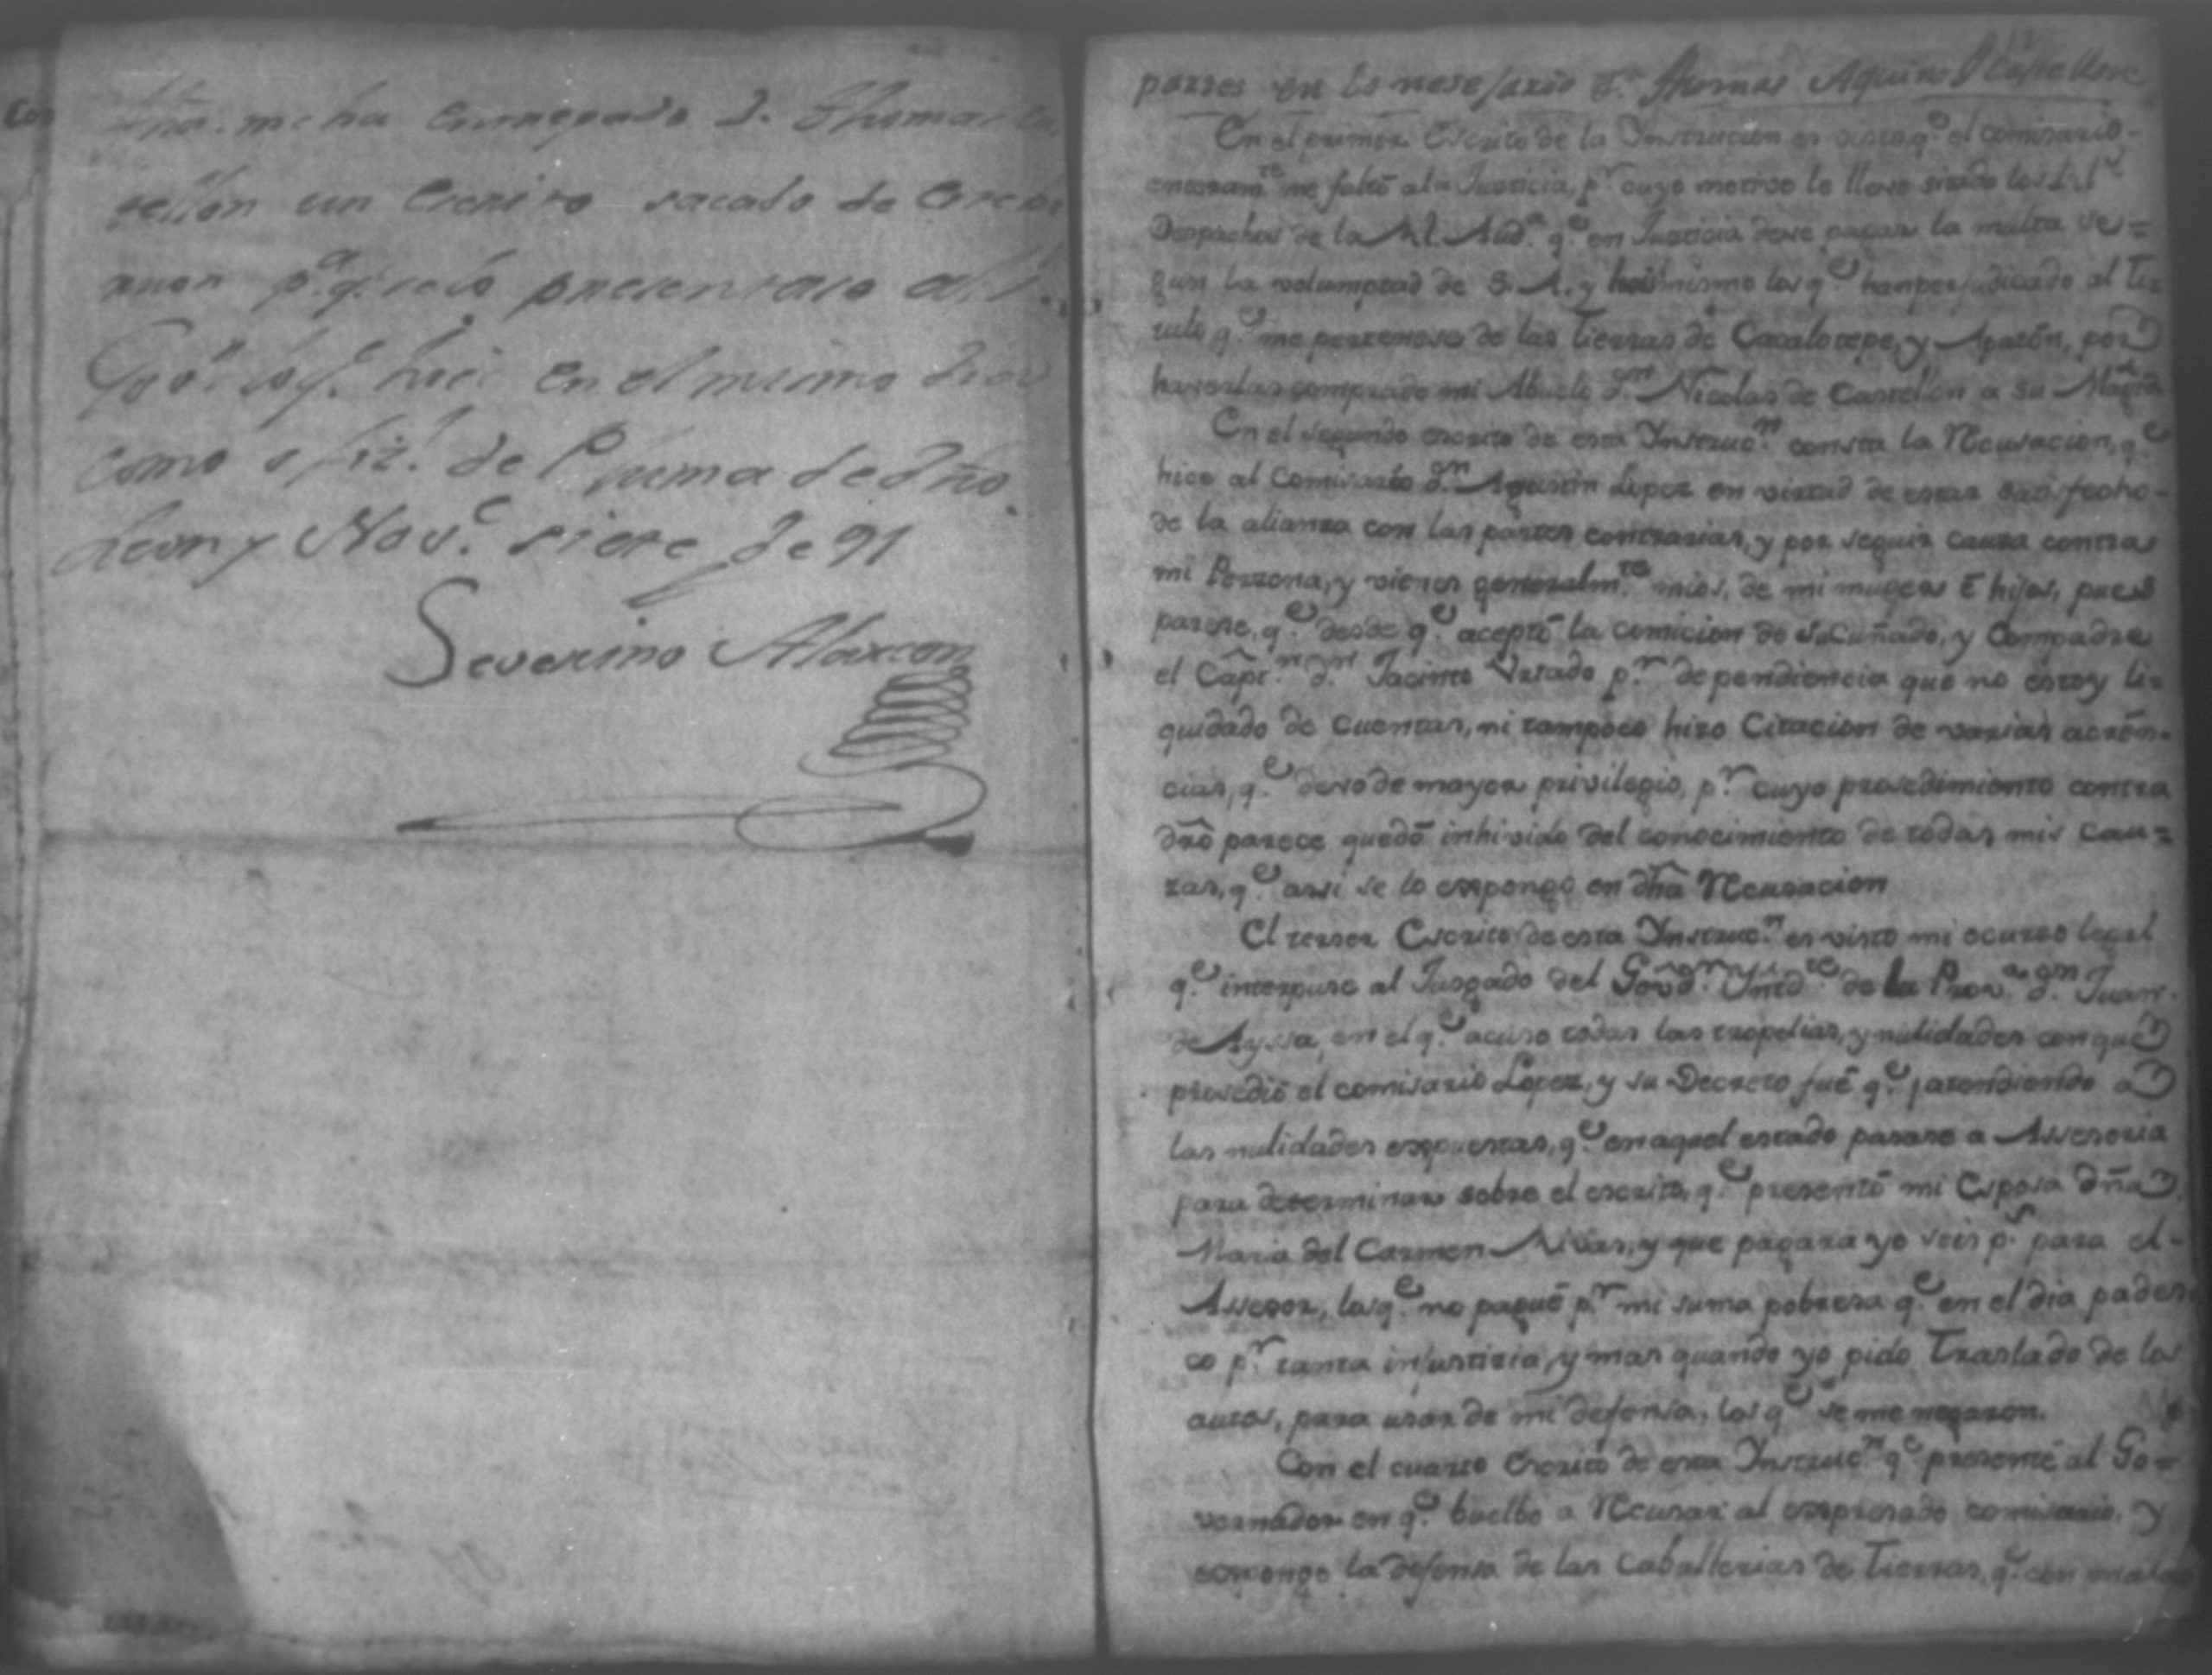 me ha entregado D. Thomas Cas
tellon un Escrito sacado de
p.ª q.
hoi en el mismo dia
como ofiz.l de Pluma de dño.
Leon y Nov.e siete de 91
Severino Alarcon
partes en lo nesesario D.n Thomas Aquino D Castellon
En el primer Escrito de la Instrucion es visto, q.e el comisario
enteram.te me faltó a la Justicia, p.r cuyo motivo le llevo sitado los
Despachos de la Rl. Aud.a q.e en Justicia deve pagar la multa se=
gun la volumptad de S. A. y hoi mismo los q.e han perjudicado al Ti=
tulo q.e me pertenese de las tierras de Cacalotepe, y Apatón, por
haverlas comprado mi Abuelo d.n Nicolas de Castellon a su Mag.d
En el segundo escrito de esta Instruc.n consta la Recusacion, q.e
hice al Comisario d.n Agustin Lopez en virtud de estar satisfecho-
de la alianza con las partes contrarias, y por seguir causa contra
mi Perzona, y vienes generalm.te mios, de mi muger E hijos, pues
parese, q.e desde q.e aceptó la comicion de su Cuñado, y Compadre
el Capt.n d.n Jacinto Vstado p.r dependiencia que no estoy li=
quidado de cuentas, ni tampoco hizo Citacion de varias acrēn-
cias, q.e devo de mayor privilegio, p.r cuyo prosedimiento contra
dr̄o parece quedó inhivido del conocimiento de todas mis cau=
zas, q.e assi se lo expongo en dh̄a Recusacion
El terser Escrito de esta Instruc.n es visto mi ocurso legal
q.e interpuse al Jusgado del Gov.or Intd.te de la Prov.a d.n Juan
de Ayssa, en el q.e acuso todas las tropelias, y nulidades con que
prosedió el comisario Lopez, y su Decreto fué q.e atendiendo a
las nulidades expuestas, q.e en aquel estado pasase a Assesoria
para determinar sobre el escrito, q.e presentó mi Esposa Dñ̄a
Maria del Carmen Rivas, y que pagara yo seis p.s para el-
Assesor, los q.e no pagué p.r mi suma pobresa q.e en el dia padez-
co p.r tanta injusticia, y mas quando yo pido Traslado de los
autos, para usar de mi defensa, los q.e se me negaron.
Con el cuarto Escrito de esta Instruc.n q.e presenté al Go=
vernador en q.e buelbo a Recusar al expresado comisario, y
sostengo la defensa de las caballerias de Tierras, q.e con